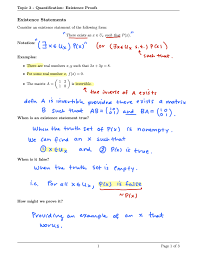 Topic 2 - Quantification: Existence Proofs
Existence Statements
Consider an existence statement of the following form:
"There exists an x ∈ Uₓ such that P(x)"
Notation: "(∃x∈Uₓ) P(x)" (or (∃x∈Uₓ s.t.) P(x)
such that.
Examples:
• There are real numbers x, y such that 2x + 3y = 6.
• For some real number x, f(x) = 0.
• The matrix A = is invertible.
the inverse of A exists
defn A is invertible provided there exists a matrix
B such that AB = and BA =
When is an existence statement true?
When the truth set of P(x) is nonempty.
We can find an x such that
① x∈Uₓ and ② P(x) is true.
When is it false?
When the truth set is empty.
i.e. For all x∈Uₓ, P(x) is false
~P(x)
How might we prove it?
Providing an example of an x that
works.
1
Page 1 of 5